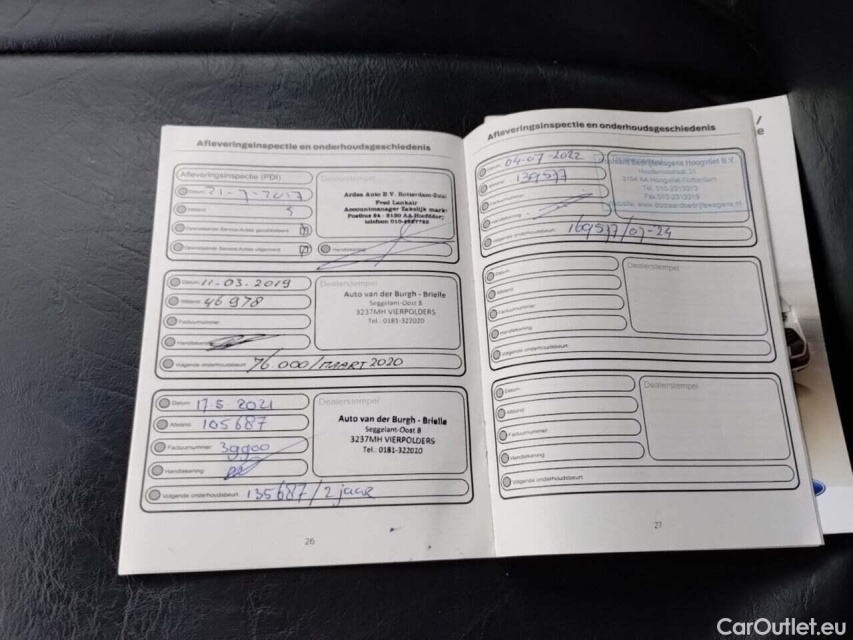 Afleveringsinspectie en onderhoudsgeschiedenis
Afleveringsinspectie (PDI)
Dealerstempel
Datum 21-7-2017
Afstand 5
Ardea Auto B.V. Rotterdam-Zuid
Fred Lankair
Accountmanager Zakelijk markt
Postbus 84 - 3130 AA
telefoon
Openstaande Service-Acties gecontroleerd
Openstaande Service-Acties uitgevoerd
Handtekening
Datum 11-03-2019
Afstand 46978
Factuurnummer
Handtekening
Volgende onderhoudsbeurt 76000/MAART 2020
Dealerstempel
Auto van der Burgh - Brielle
Seggelant-Oost 8
3237MH VIERPOLDERS
Tel.: 0181-322020
Datum 17-5-2021
Afstand 105687
Factuurnummer 39900
Handtekening
Volgende onderhoudsbeurt 135687/2 jaar
Dealerstempel
Auto van der Burgh - Brielle
Seggelant-Oost 8
3237MH VIERPOLDERS
Tel.: 0181-322020
26
Afleveringsinspectie en onderhoudsgeschiedenis
Datum 04-07-2022
Afstand 139577
Volgende onderhoudsbeurt 169577/07-24
Bedrijfswagens Hoogvliet B.V.
31
3194 AA Hoogvliet-Rotterdam
Tel. 010-2313313
Fax 010-2313319
Datum
Afstand
Factuurnummer
Handtekening
Volgende onderhoudsbeurt
Dealerstempel
Datum
Afstand
Factuurnummer
Handtekening
Volgende onderhoudsbeurt
Dealerstempel
27
CarOutlet.eu